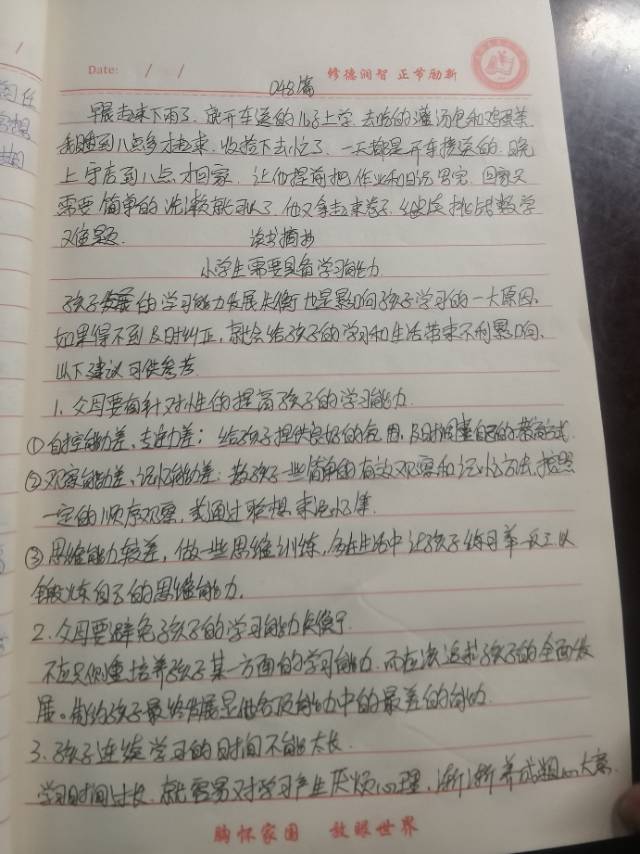 Date: / /
修德润智 正节励新
048篇
早晨起来下雨了.就开车送的儿子上学.去吃的灌汤包和鸡蛋羹
我睡到八点多才起来.收拾下去忙了.一天都是开车接送的.晚
上守店到八点才回家.让他提前把作业和日记写完.回家只
需要简单的洗漱就可以了.他又拿起来卷子.继续挑战数学
难题.
读书摘抄
小学生需要具备学习能力
孩子的学习能力发展失衡也是影响孩子学习的一大原因,
如果得不到及时纠正,就会给孩子的学习和生活带来不利影响,
以下建议可供参考
1.父母要有针对性的提高孩子的学习能力.
①自控能力差、专注力差:给孩子提供良好的氛围,及时调整自己的教育方式.
②观察能力差、记忆能力差:教孩子一些简单的有效观察和记忆方法.按照
一定的顺序观察,或通过联想来记忆等.
③思维能力较差,做一些思维训练,多在生活中让孩子练习举一反三以
锻炼自己的思维能力.
2.父母要避免孩子的学习能力失衡
不应只侧重培养孩子某一方面的学习能力.而应该追求孩子的全面发
展。制约孩子最终发展是他各项能力中的最差的能力
3.孩子连续学习的时间不能太长.
学习时间过长.就容易对学习产生厌烦心理,渐渐养成粗心大意
胸怀家国 放眼世界